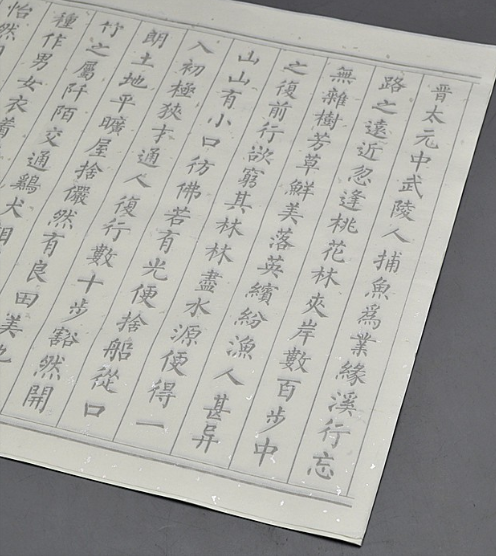 晋太元中武陵人捕魚爲業緣溪行忘
路之遠近忽逢桃花林夾岸數百步中
無雜樹芳草鮮美落英繽紛漁人甚异
之復前行欲窮其林林盡水源便得一
山山有小口彷佛若有光便捨船從口
入初極狹才通人復行數十步豁然開
朗土地平曠屋捨儼然有良田美池
竹之屬阡陌交通鷄犬相
種作男女衣着
怡然